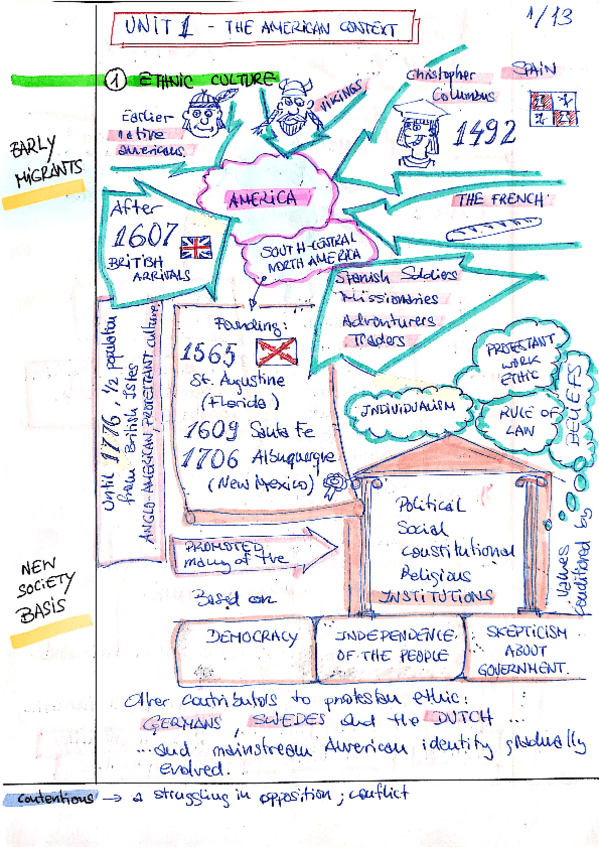 UNIT 1 - THE AMERICAN CONTEXT
1/13
1 ETHNIC CULTURE
EARLY
MIGRANTS
Earlier
native
americans
VIKINGS
Christopher
Columbus
SPAIN
1492
AMERICA
THE FRENCH
After
1607
BRITISH
ARRIVALS
SOUTH-CENTRAL
NORTH AMERICA
Spanish Soldiers
Missionaries
Adventurers
Traders
Until 1776 1/2 population
from British Isles
ANGLO-AMERICAN, PROTESTANT culture
Founding:
1565
St. Augustine
(Florida)
1609 Santa Fe
1706 Albuquerque
(New Mexico)
INDIVIDUALISM
PROTESTANT
WORK
ETHIC
RULE OF
LAW
BELIEFS
values
conditioned by
NEW
SOCIETY
BASIS
PROMOTED
many of the
Political
Social
Constitutional
Religious
INSTITUTIONS
Based on
DEMOCRACY
INDEPENDENCE
OF THE PEOPLE
SKEPTICISM
ABOUT
GOVERNMENT.
Other contributors to protestan ethic:
GERMANS, SWEDES and the DUTCH ...
...and mainstream American identity gradually
evolved.
contentions → a struggling in opposition; conflict